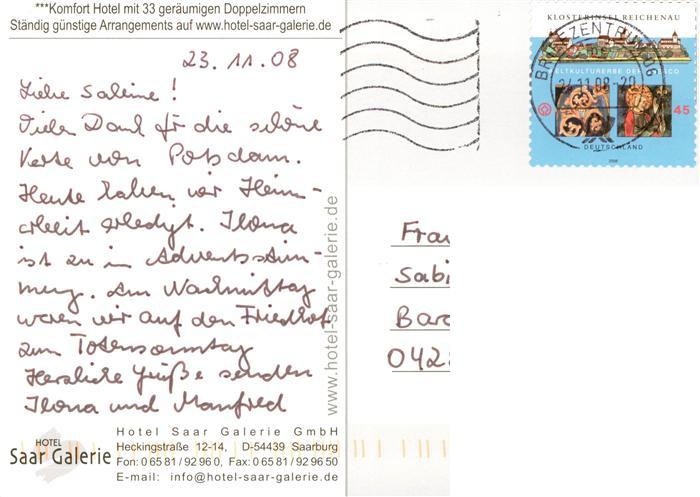 ***Komfort Hotel mit 33 geräumigen Doppelzimmern
Ständig günstige Arrangements auf www.hotel-saar-galerie.de
23.11.08
Liebe Sabine!
Vielen Dank für die schöne
Karte von Potsdam.
Heute haben wir Heim-
arbeit erledigt. Ilona
ist zu in Adventsstim-
mung. Am Nachmittag
waren wir auf den Friedhof
zum Totensonntag
Herzliche Grüße senden
Ilona und Manfred
www.hotel-saar-galerie.de
HOTEL
Saar Galerie
Hotel Saar Galerie GmbH
Heckingstraße 12-14, D-54439 Saarburg
Fon: 0 65 81 / 92 96 0, Fax: 0 65 81 / 92 96 50
E-mail: info@hotel-saar-galerie.de
KLOSTERINSEL REICHENAU
WELTKULTURERBE DER UNESCO
45
DEUTSCHLAND
2008
BRIEFZENTRUM 06
24.11.08-20
Frau
Sabi
Bar
042